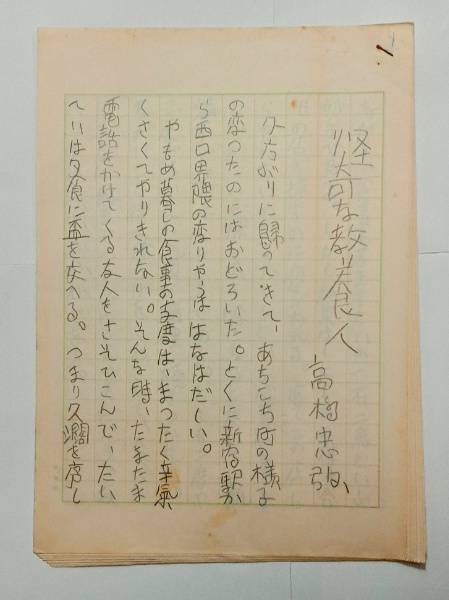 怪奇な教養人
高橋忠弥
久方ぶりに歸つてきて、あちこち町の様子
の変つたのにはおどろいた。とくに新宿駅か
ら西口界隈の変りやうははなはだしい。
やもめ暮しの食事の支度は、まつたく辛氣
くさくてやりきれない。そんな時、たまたま
電話をかけてくる友人をさそひこんで、たい
ていは夕食に盃を交へる。つまり久濶を序し